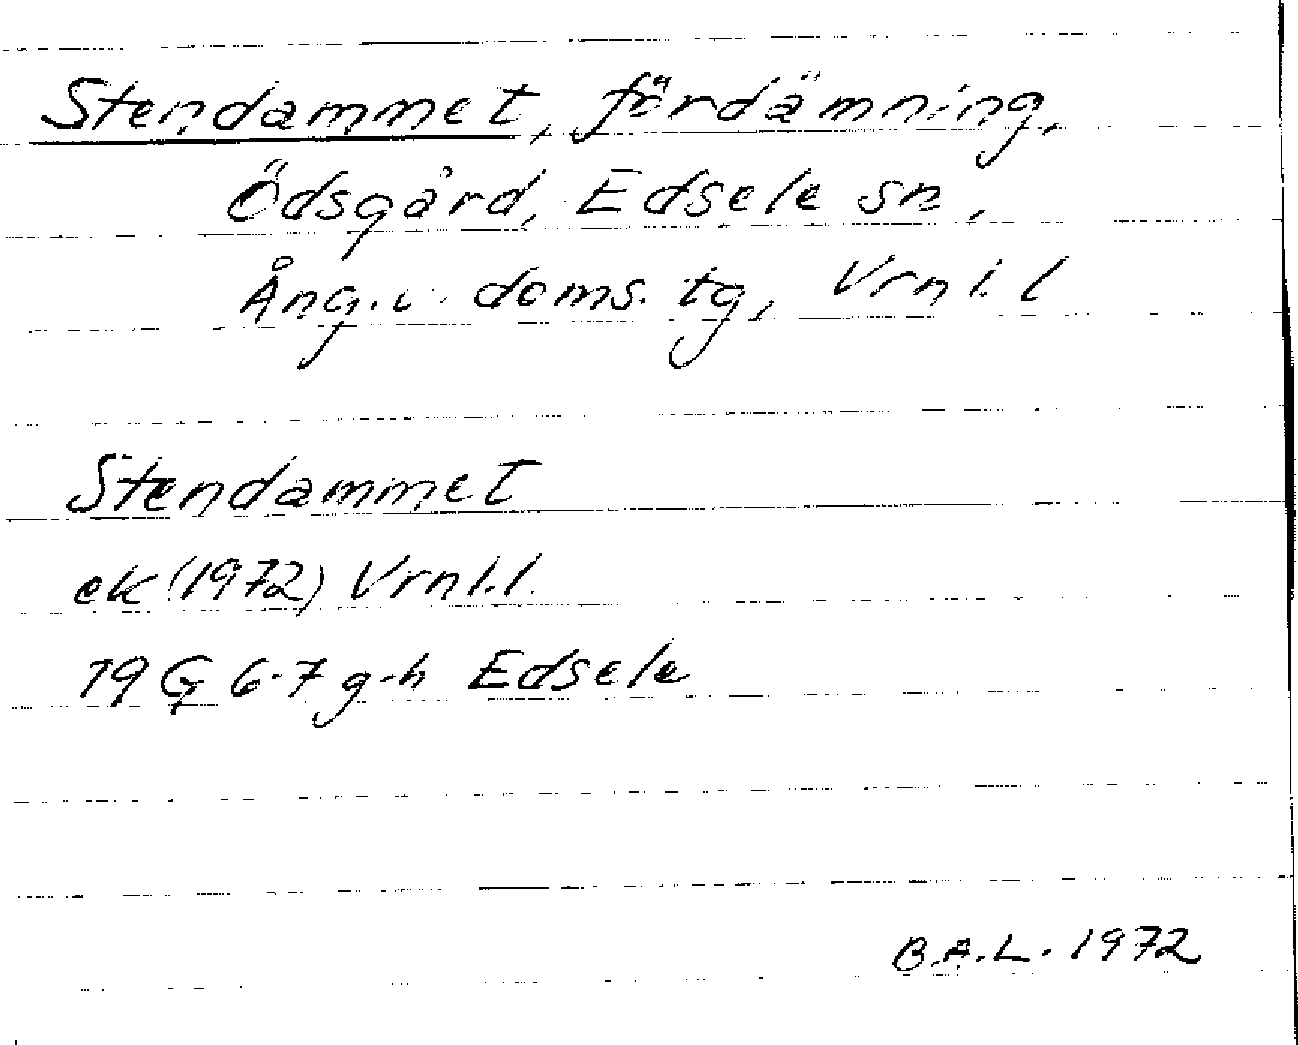 Stendammet, fördämning,
Ödsgård, Edsele sn,
Ång. v. doms. tg, Vrnl. l
Stendammet
ek (1972) Vrnl. l.
19 G 6-7 g-h Edsele
B.A.L. 1972